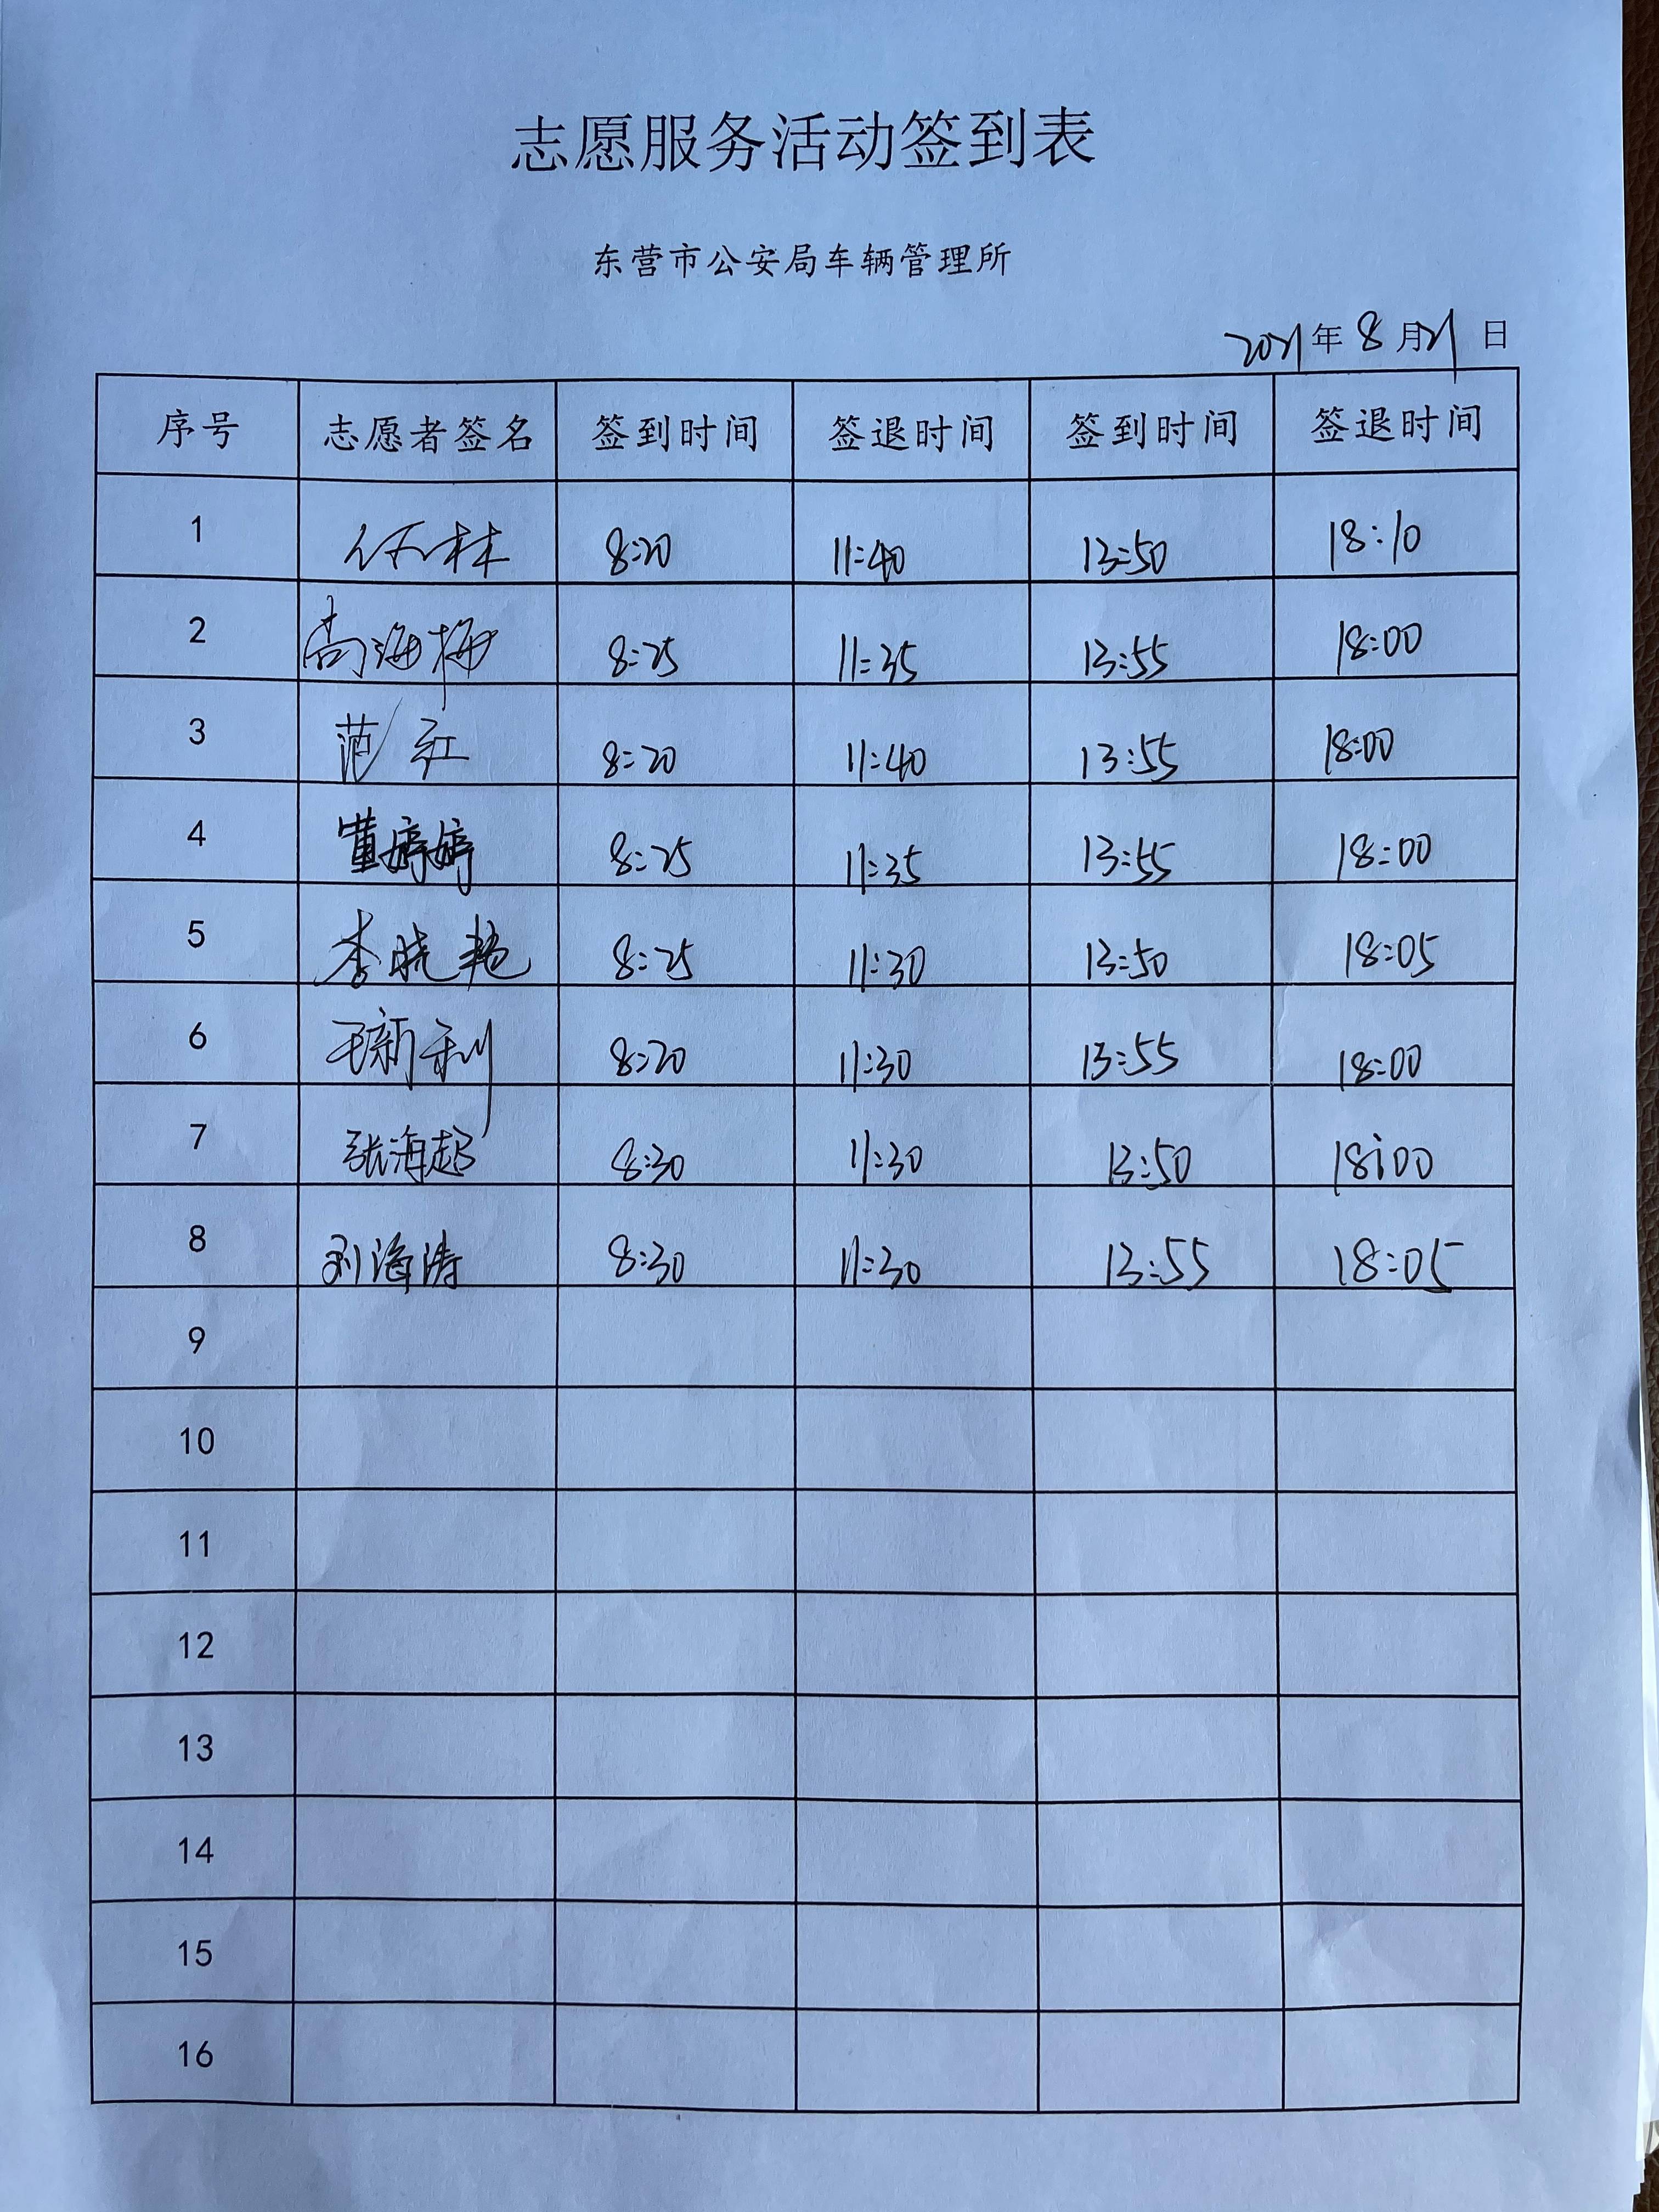 志愿服务活动签到表
东营市公安局车辆管理所
2021年8月21日
序号 志愿者签名 签到时间 签退时间 签到时间 签退时间
1 林 8:20 11:40 13:50 18:10
2 尚海梅 8:25 11:35 13:55 18:00
3 范红 8:20 11:40 13:55 18:00
4 董婷婷 8:25 11:35 13:55 18:00
5 李晓艳 8:25 11:30 13:50 18:05
6 王新利 8:20 11:30 13:55 18:00
7 张海超 8:30 11:30 13:50 18:00
8 刘海涛 8:30 11:30 13:55 18:05
9
10
11
12
13
14
15
16